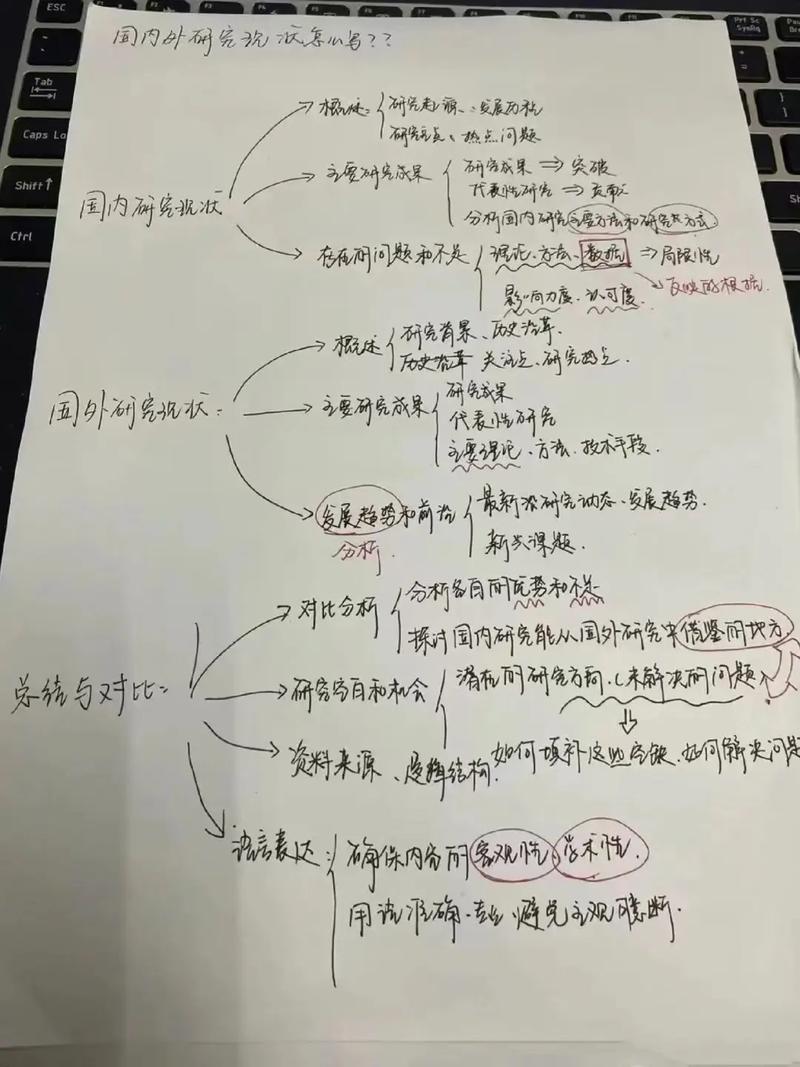 ESC
Tab
Caps Lo
Shift
Ctrl
Prt Sc
SysRq
国内外研究现状怎么写??
国内研究现状
概述: 研究起源、发展历程
研究重点、热点问题
主要研究成果
研究成果 ⇒ 突破
代表性研究 ⇒ 贡献
分析国内研究主要方法和研究方式
存在的问题和不足
理论、方法、数据 ⇒ 局限性
反映的根据.
影响力度、认可度.
国外研究现状:
概述
研究背景、历史沿革.
历史沿革 关注点、研究热点.
主要研究成果
研究成果
代表性研究
主要理论、方法、技术手段.
发展趋势和前沿
分析.
最新研究动态、发展趋势.
新兴课题.
总结与对比:
对比分析
分析各自的优势和不足
探讨国内研究能从国外研究中借鉴的地方
研究空白和机会
潜在的研究方向、未解决的问题
资料来源、逻辑结构.
如何填补这些空缺、如何解决问题
语言表达:
确保内容的客观性、学术性.
用词准确、专业、避免主观臆断.